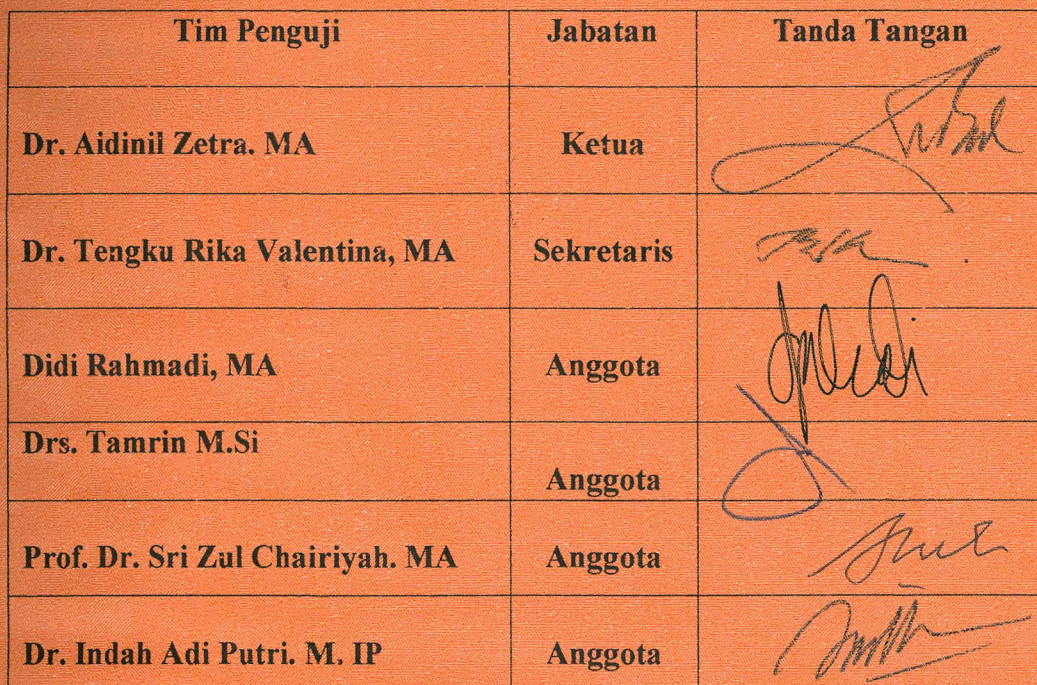 Tim Penguji Jabatan Tanda Tangan
Dr. Aidinil Zetra. MA Ketua
Dr. Tengku Rika Valentina, MA Sekretaris
Didi Rahmadi, MA Anggota
Drs. Tamrin M.Si
Anggota
Prof. Dr. Sri Zul Chairiyah. MA Anggota
Dr. Indah Adi Putri. M. IP Anggota